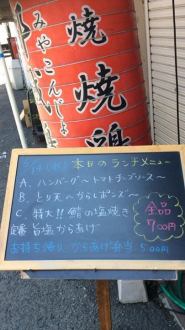 みやこんじょ
焼
焼
鶏
本日のランチメニュー
A. ハンバーグ〜トマトチーズソース〜
B. とり天〜からしポンズ〜
C. 特大!! 鯖の塩焼き
定番 旨塩からあげ
全品
700円
お持ち帰り からあげ弁当 500円